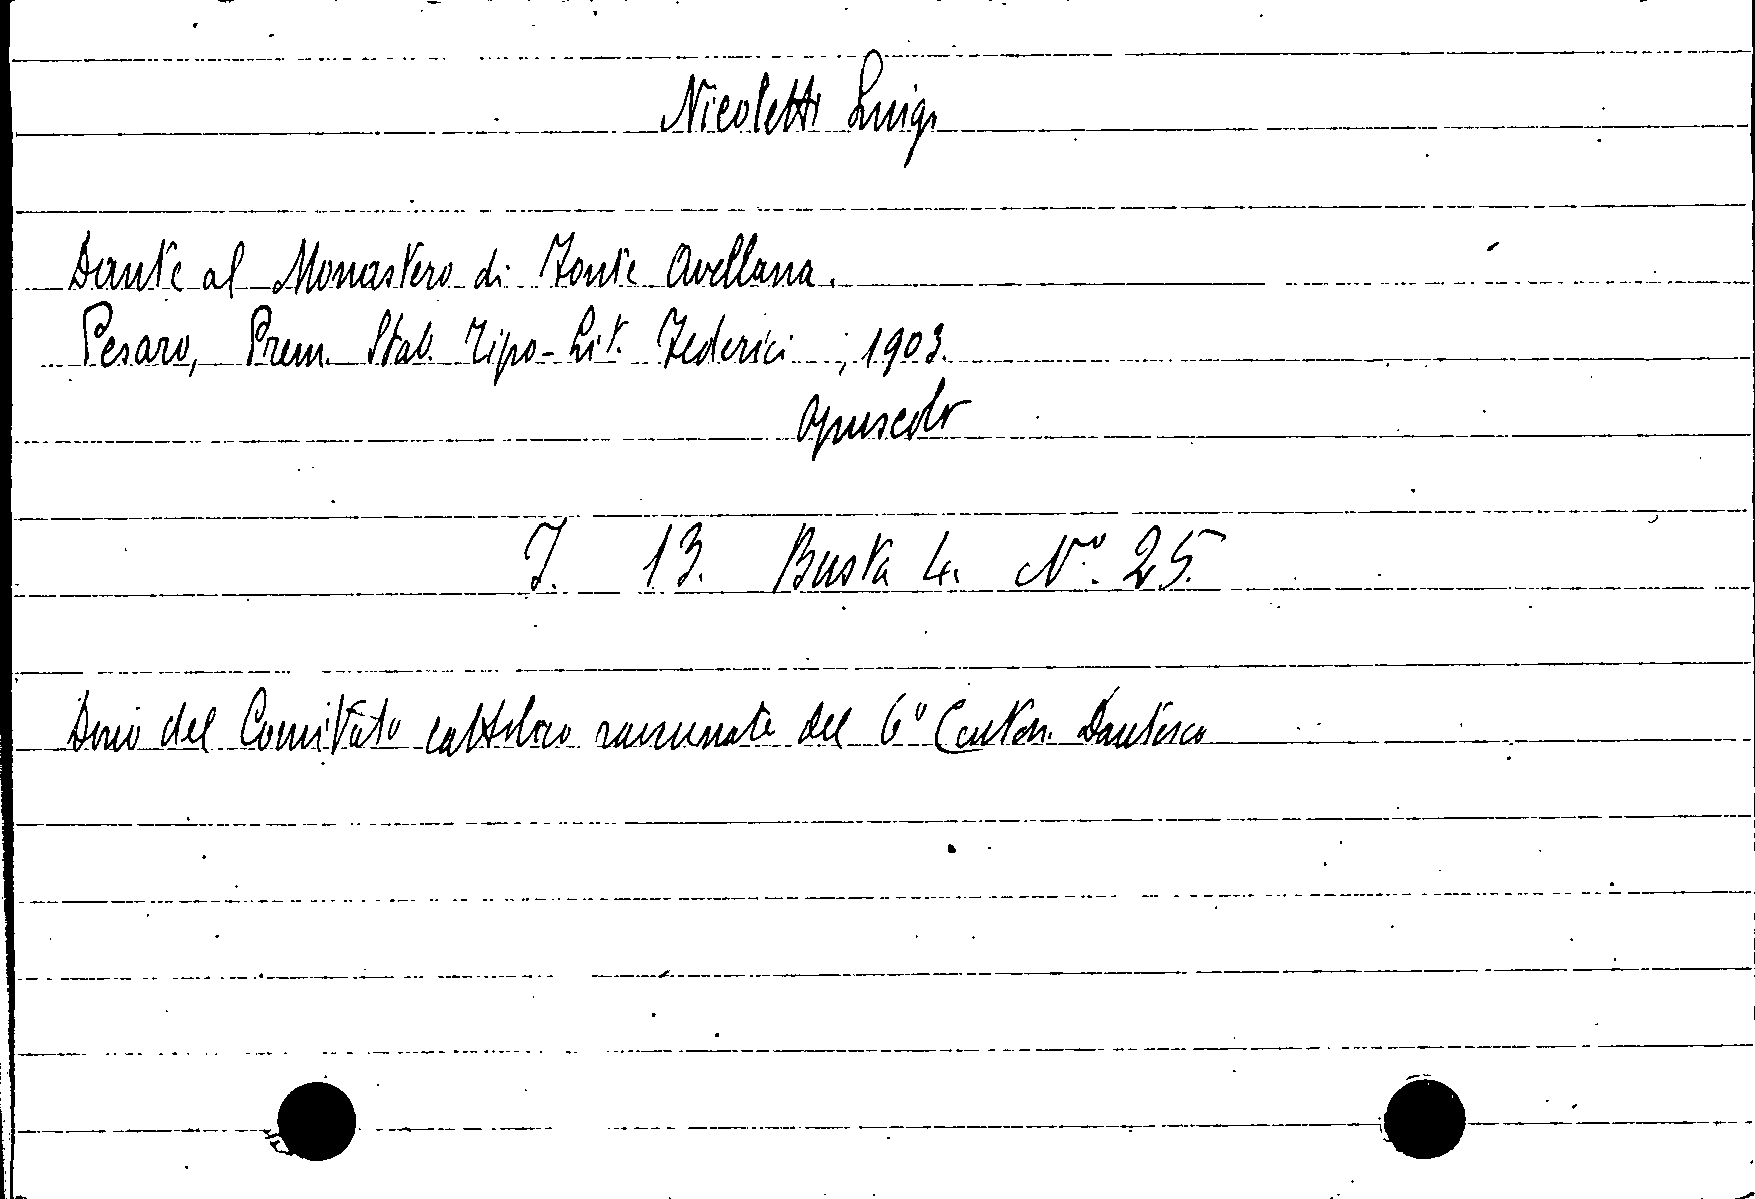 Nicoletti Luigi
Dante al Monastero di Fonte Avellana.
Pesaro, Prem. Stab. Tipo-Lit. Federici, 1903.
opuscolo
I. 13. Busta 4. N.º 25.
Dono del Comitato cattolico ravennate del 6º Centen. Dantesco